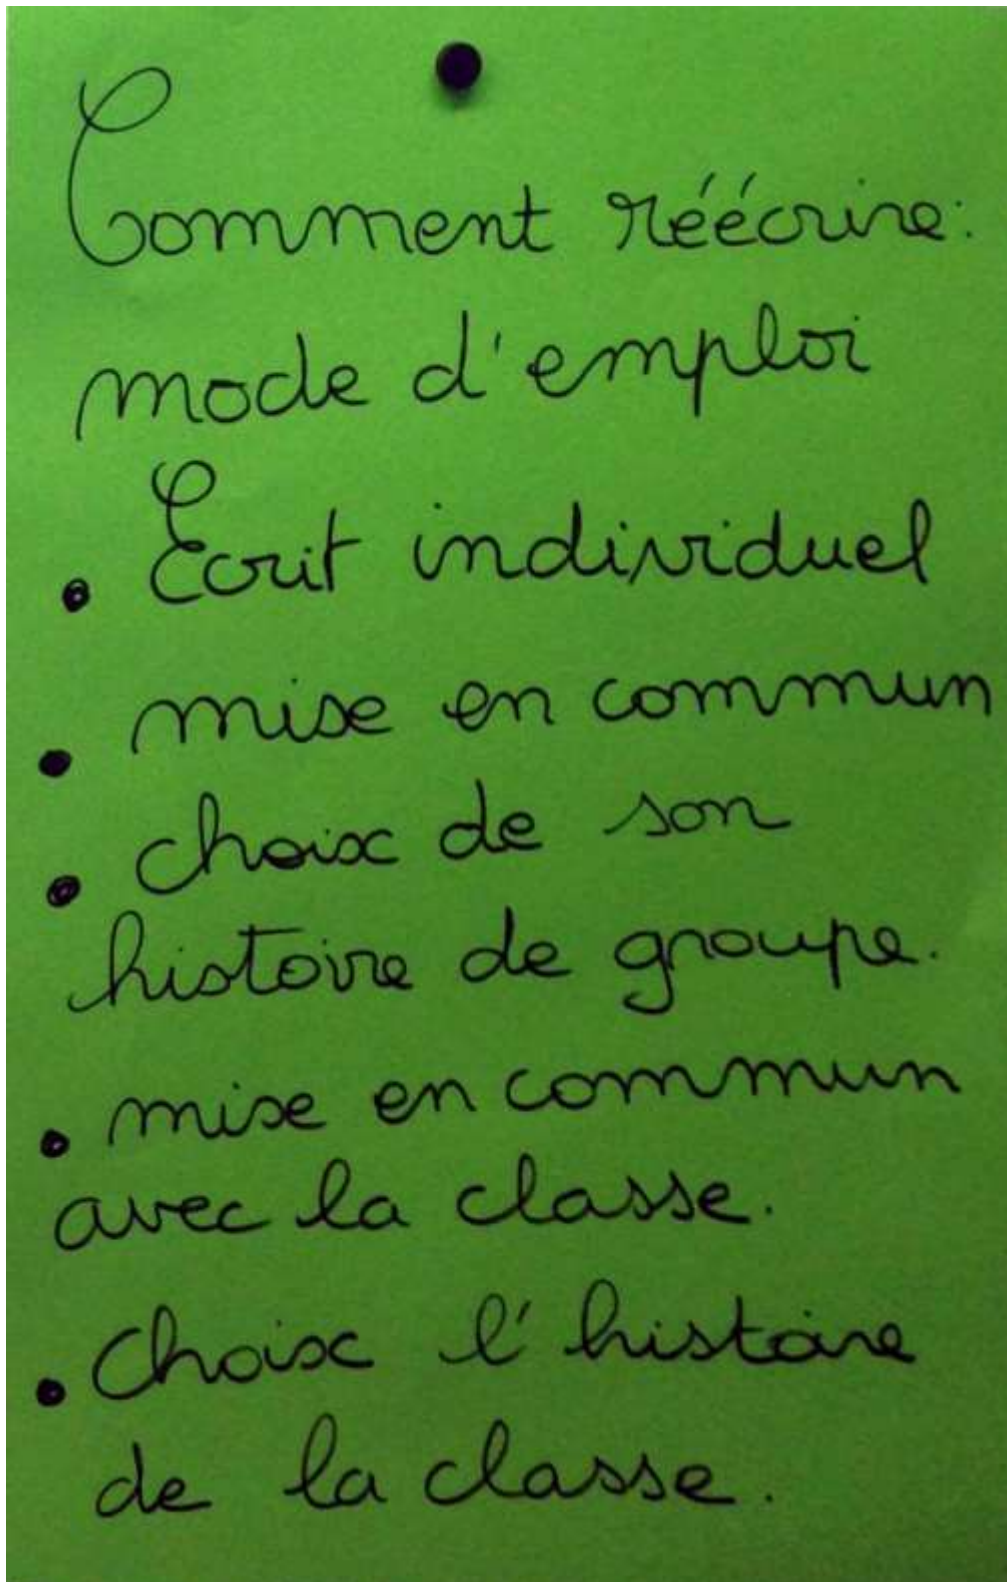 Comment réécrire:
mode d'emploi
• Ecrit individuel
• mise en commun
• choix de son
histoire de groupe.
• mise en commun
avec la classe.
• Choix l'histoire
de la classe.